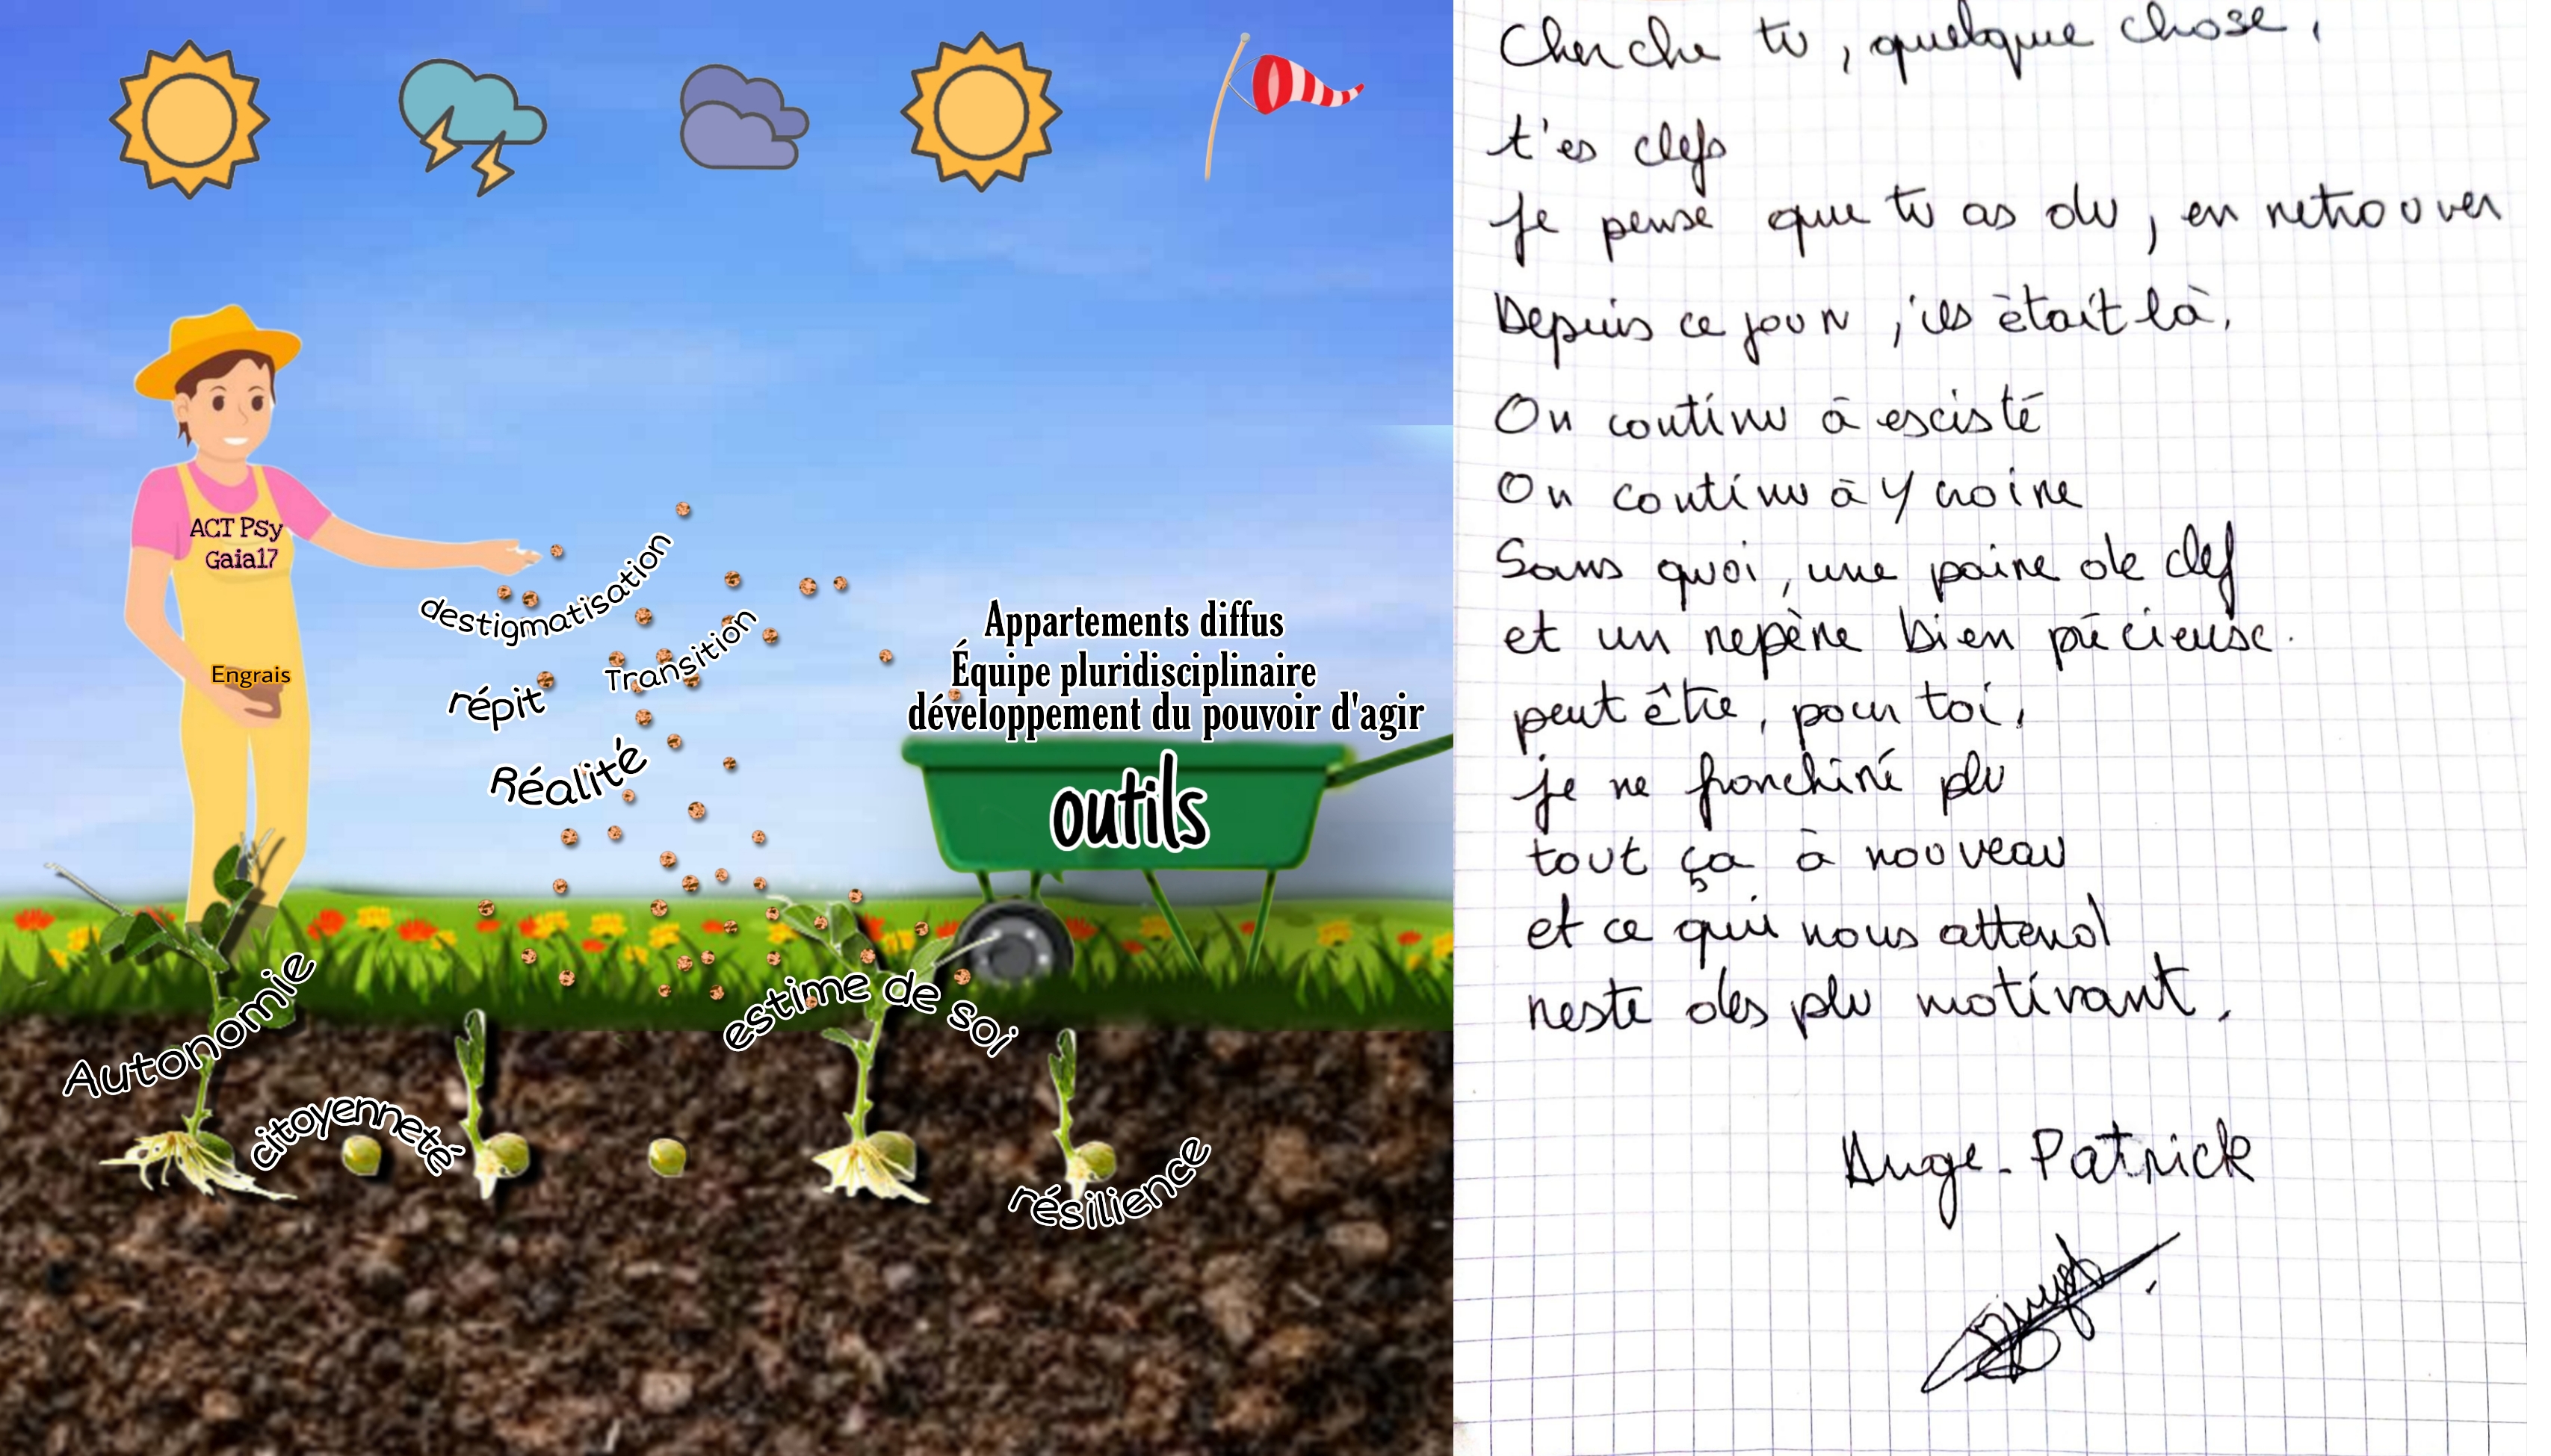 ACT Psy
Gaia17
Engrais
destigmatisation
Transition
répit
Réalité
Appartements diffus
Équipe pluridisciplinaire
développement du pouvoir d'agir
outils
Autonomie
estime de soi
citoyenneté
résilience
Cherche tu, quelque chose,
t'es clefs
Je pense que tu as du, en retrouver
Depuis ce jour, ils ètait là,
On continu à escisté
On continu à y croire
Sans quoi, une paire de clef
et un repère bien précieuse.
peut être, pour toi,
je ne franchiré plu
tout ça à nouveau
et ce qui nous attend
reste des plu motivant,
Auge-Patrick